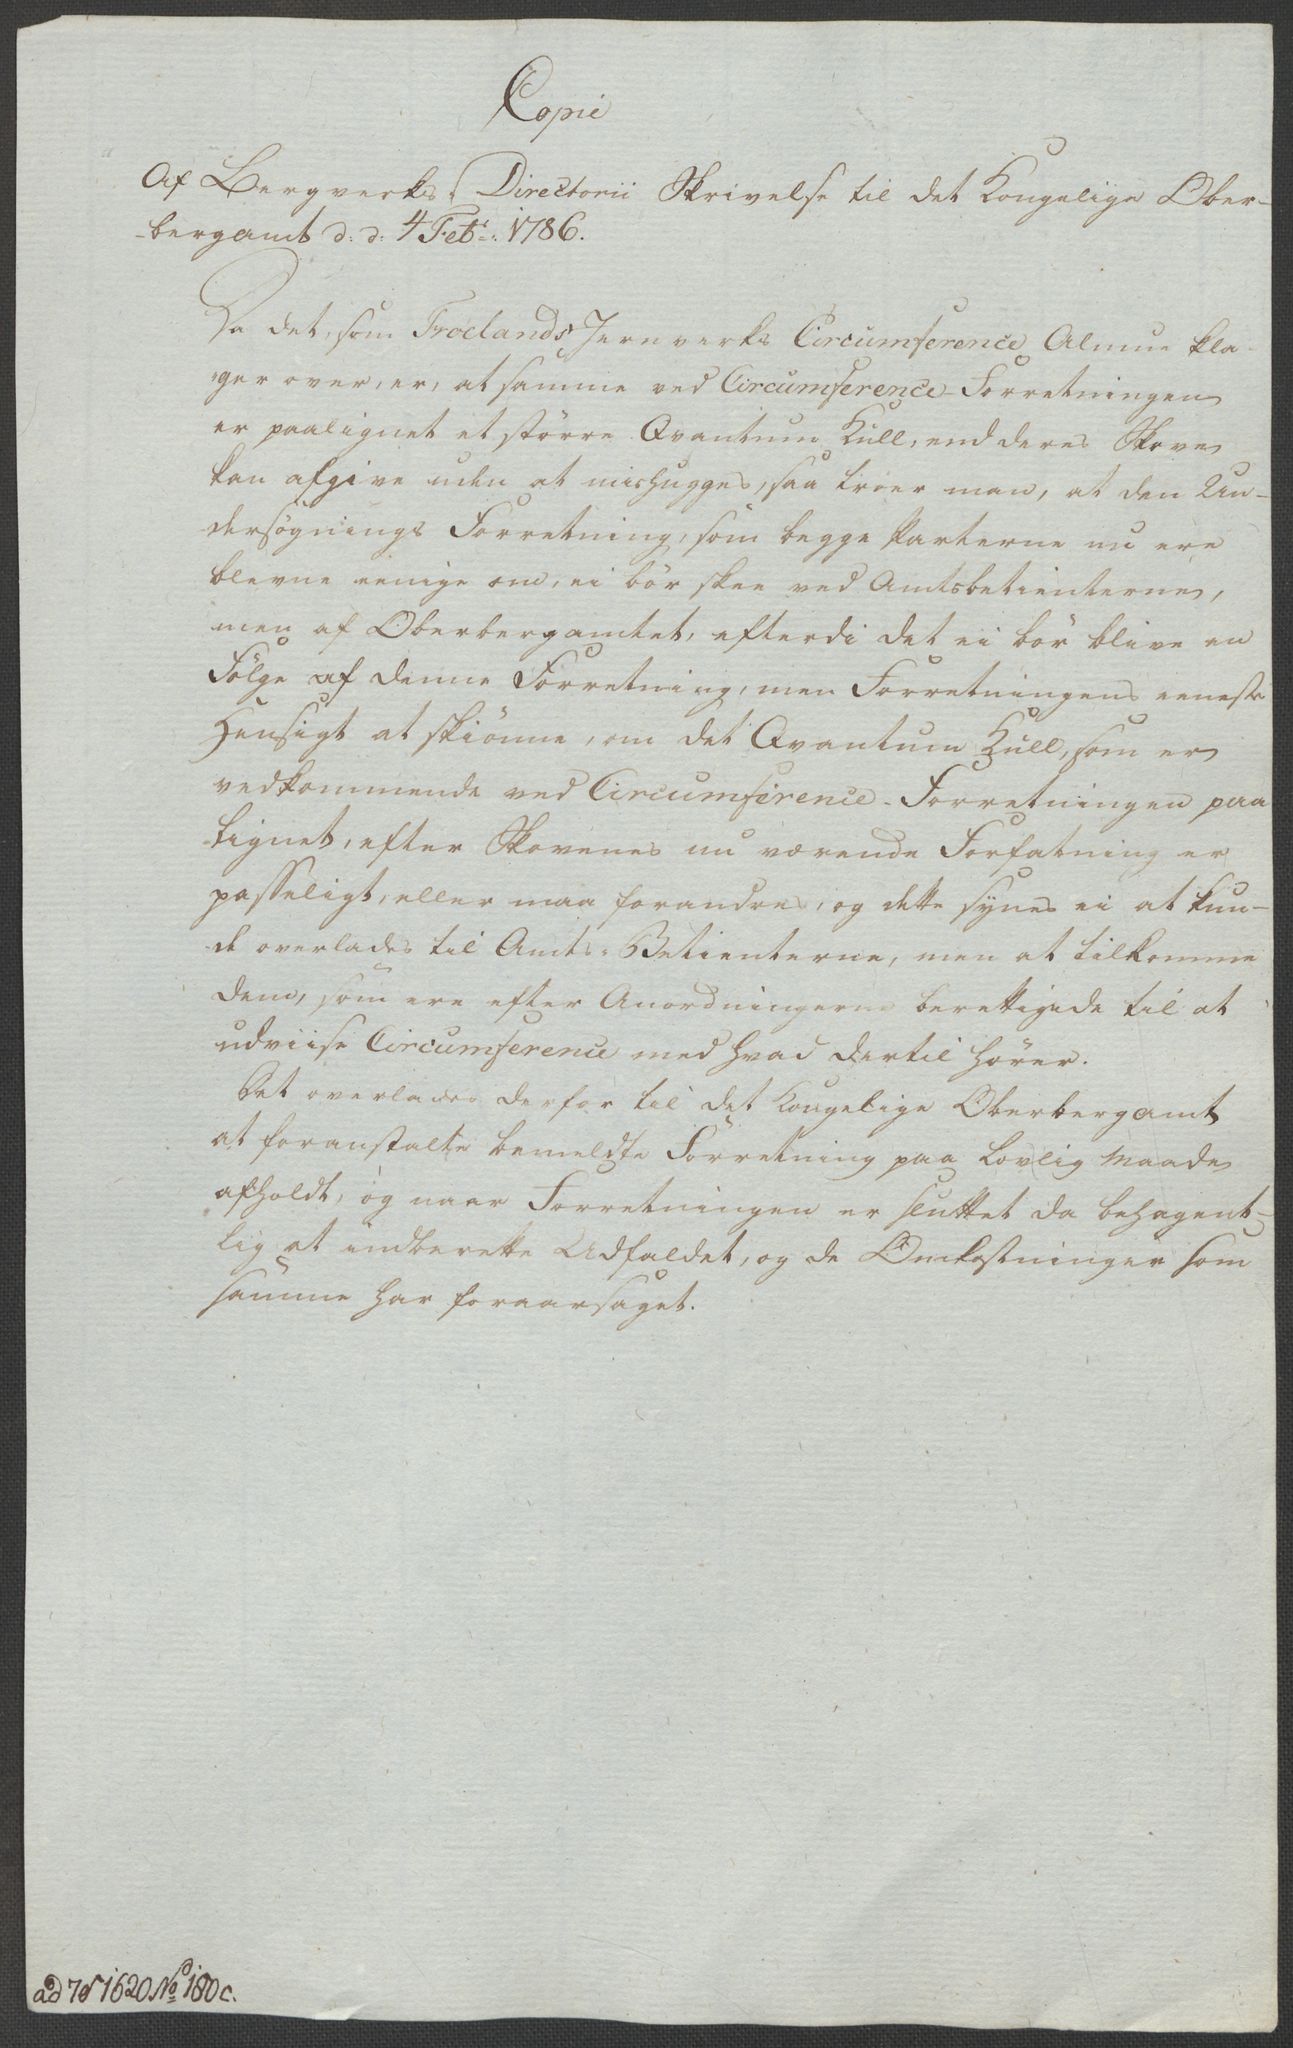 Copie
Af Bergverks-Directorii Skrivelse til det Kongelige Ober-
-bergamt d: d: 4 Febr: 1786.
Da det, som Froelands Jernverks Circumference Almue kla-
-ger over, er, at samme ved Circumference-Forretningen
er paalignet et större Qvantum Kull, end deres Skove
kan afgive uden at mishugges, saa troer man, at den Un-
dersögnings Forretning, som begge Parterne nu ere
blevne eenige om, ei bör skee ved Amtsbetienterne,
men af Oberbergamtet, efterdi det ei bör blive en
Fölge af denne Forretning, men Forretningens eeneste
Hensigt at skiönne, om det Qvantum Kull, som er
vedkommende ved Circumference-Forretningen paa
lignet, efter Skovenes nu værende Forfatning er
passeligt, eller maa forandres, og dette synes ei at kun-
-de overlades til Amts-Betienterne, men at tilkomme
dem, som ere efter Anordningerne berettigede til at
udviise Circumference med hvad dertil hörer.
Det overlades derfor til det Kongelige Oberbergamt
at foranstalte bemeldte Forretning paa lovlig Maade
afholdt, og naar Forretningen er sluttet da behagent-
lig at indberette Udfaldet, og de Omkostninger som
samme har foraarsaget.
ad 1620 No 180 c.